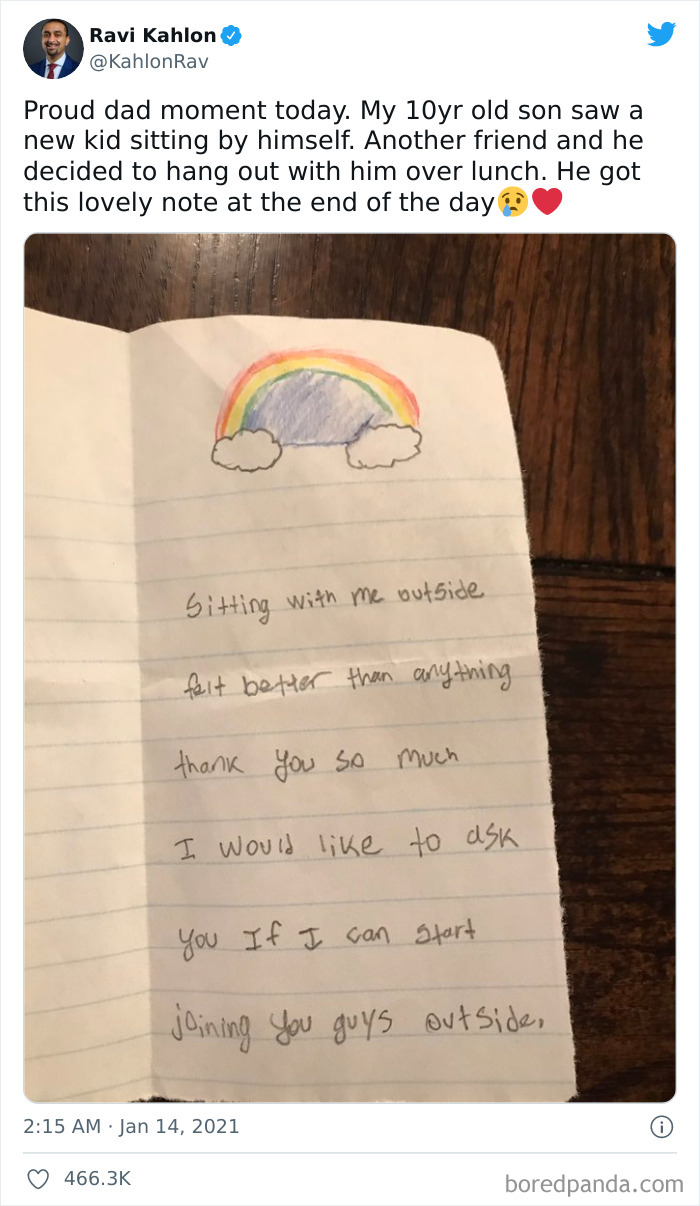 Ravi Kahlon
@KahlonRav
Proud dad moment today. My 10yr old son saw a
new kid sitting by himself. Another friend and he
decided to hang out with him over lunch. He got
this lovely note at the end of the day😢❤️
Sitting with me outside
felt better than anything
thank you so much
I would like to ask
you If I can start
joining you guys outside,
2:15 AM · Jan 14, 2021
466.3K
boredpanda.com